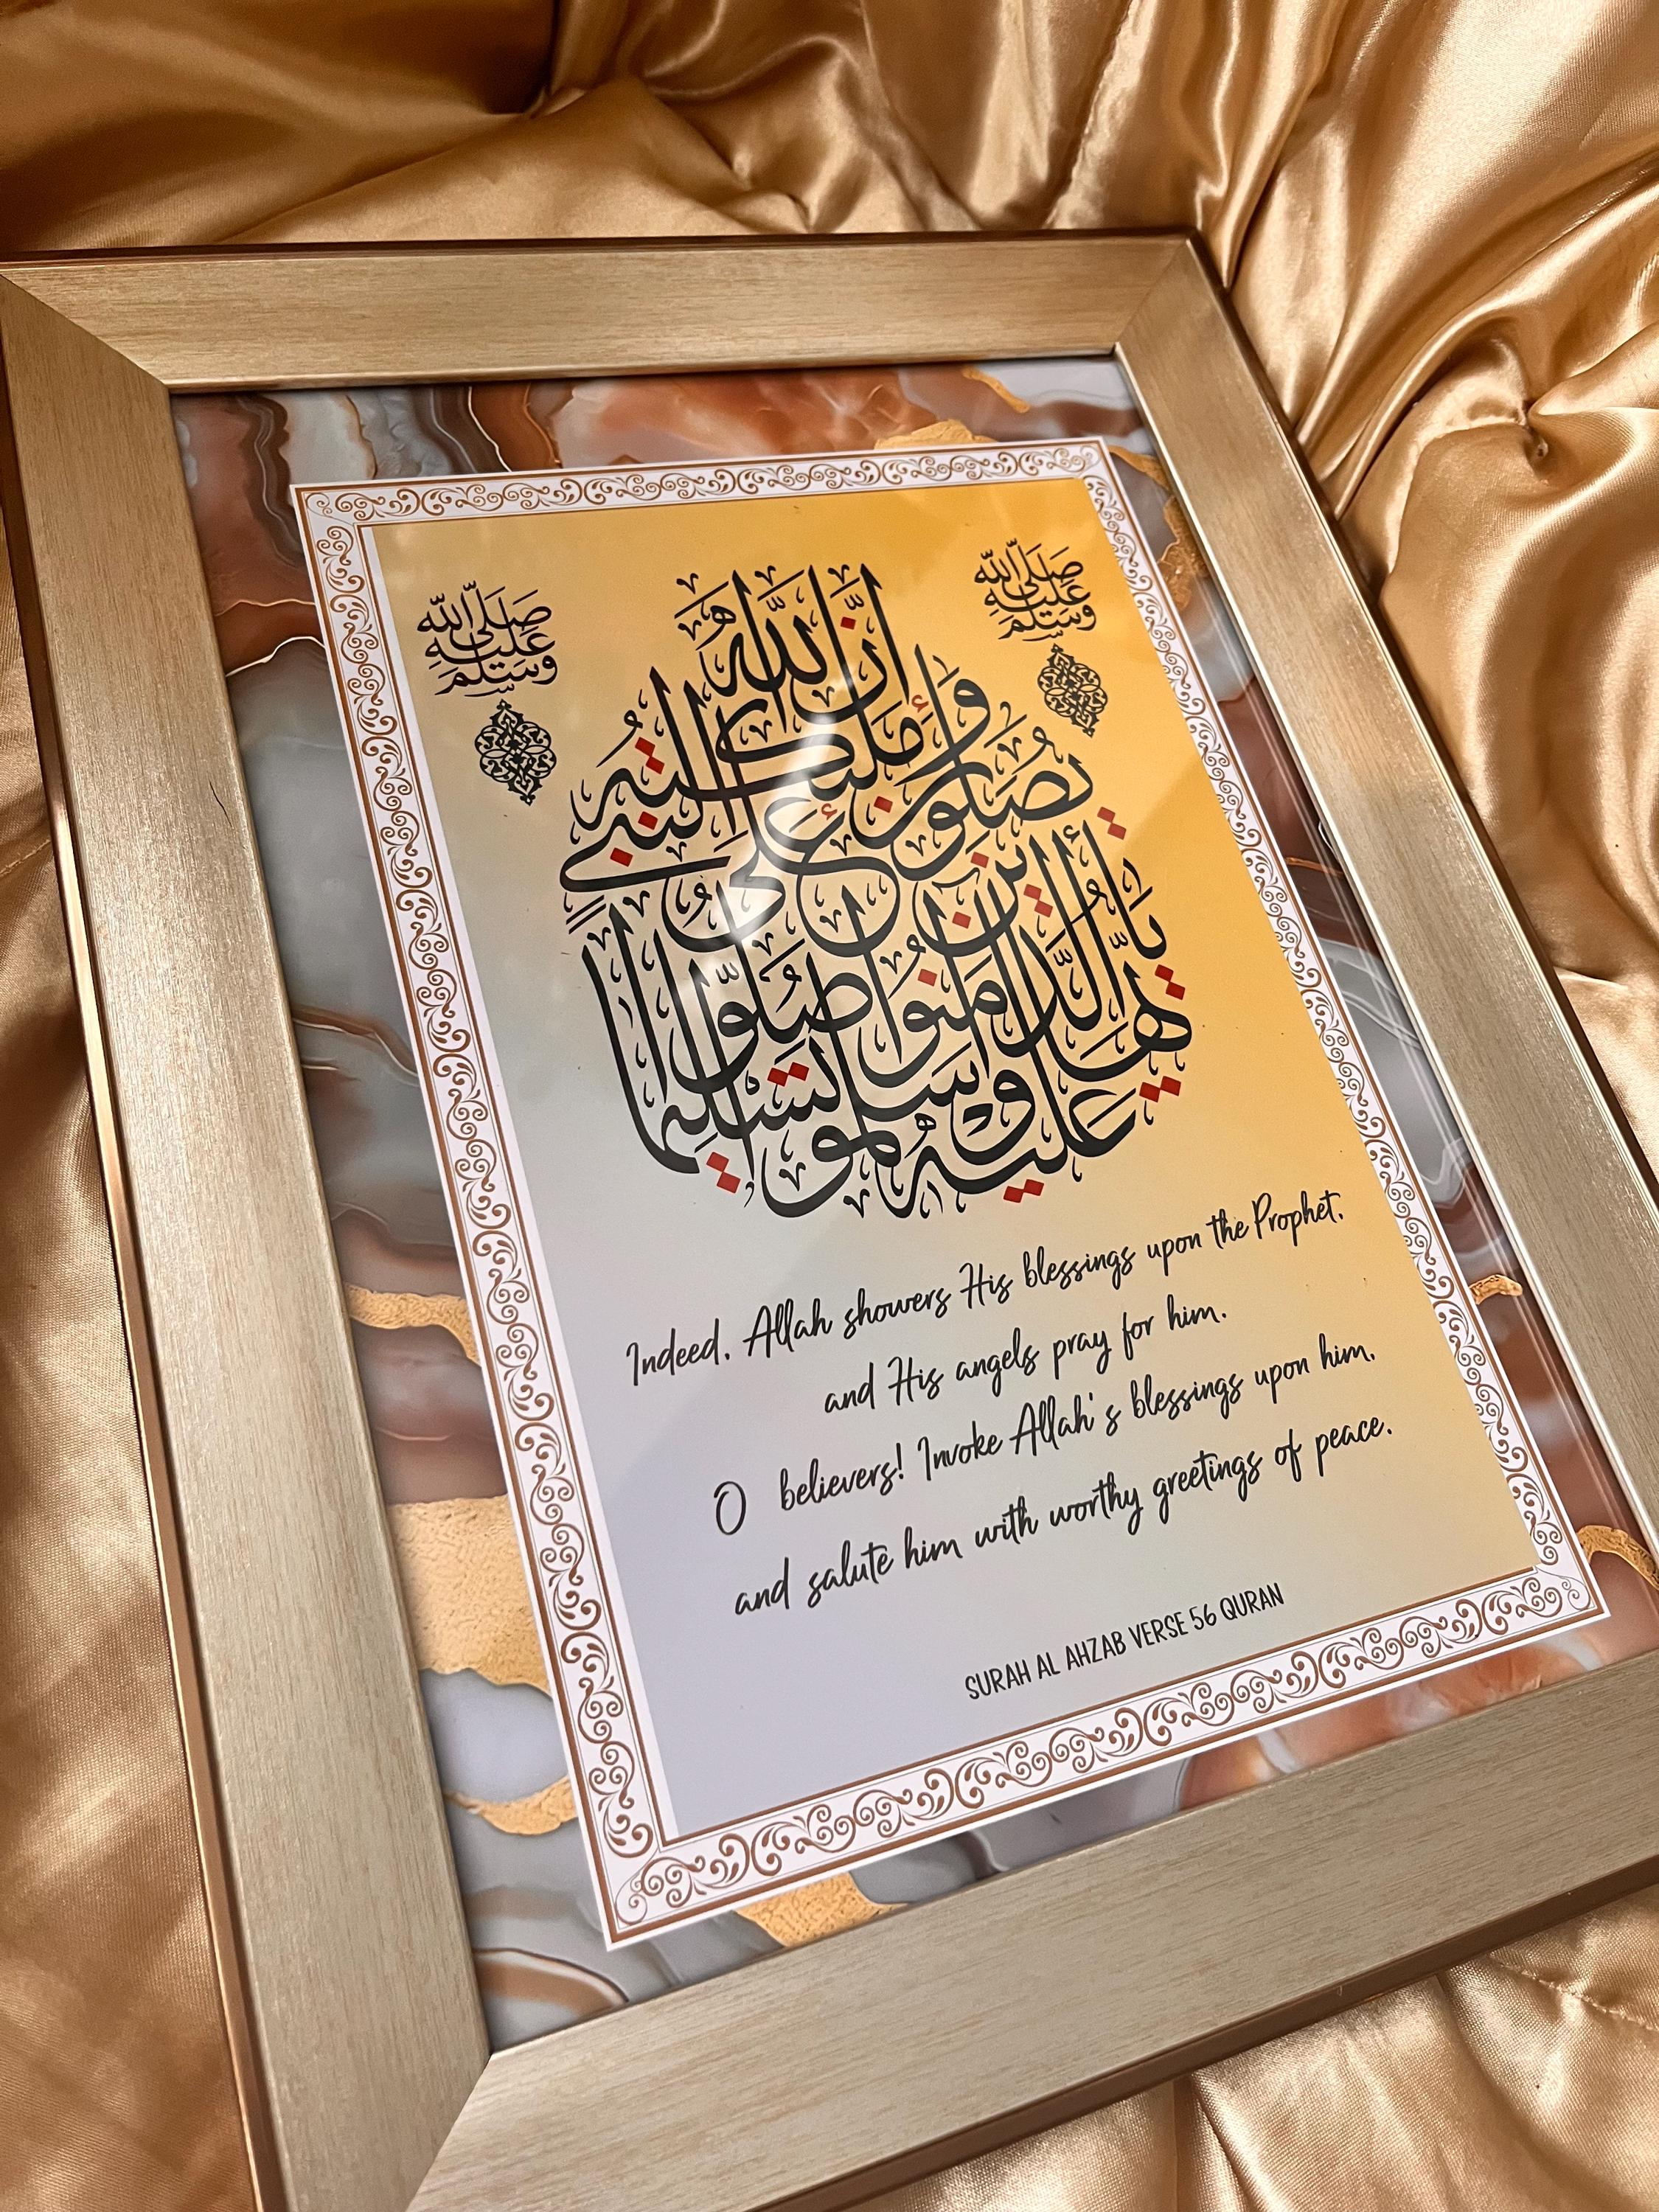 صلى الله
عليه
وسلم
صلى الله
عليه
وسلم
إن الله
وملئكته
يصلون على النبي
يأيها الذين ءامنوا صلوا
عليه وسلموا تسليما
Indeed, Allah showers His blessings upon the Prophet,
and His angels pray for him.
O believers! Invoke Allah's blessings upon him,
and salute him with worthy greetings of peace.
SURAH AL AHZAB VERSE 56 QURAN